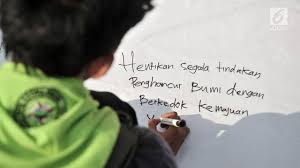 Hentikan segala tindakan
Penghancur Bumi dengan
Berkedok Kemajuan
Y